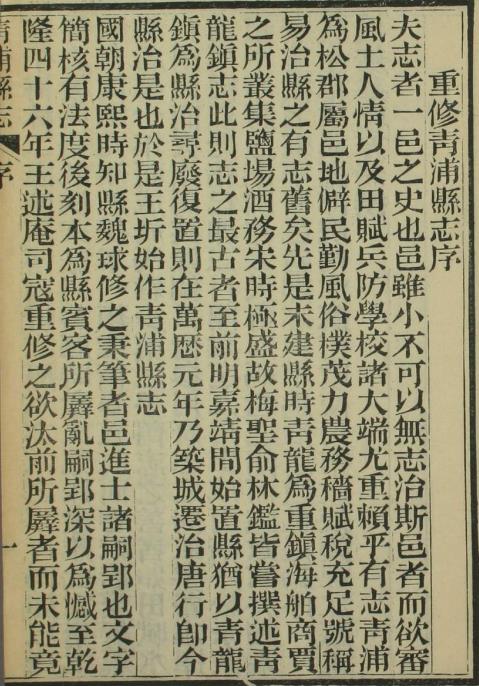 重修靑浦縣志序
夫志者一邑之史也邑雖小不可以無志治斯邑者而欲審
風土人情以及田賦兵防學校諸大端尤重賴乎有志靑浦
爲松郡屬邑地僻民勤風俗樸茂力農務穡賦稅充足號稱
易治縣之有志舊矣先是未建縣時靑龍爲重鎮海舶商賈
之所叢集鹽場酒務宋時極盛故梅聖俞林鑑皆嘗撰述靑
龍鎮志此則志之最古者至前明嘉靖間始置縣猶以青龍
鎮爲縣治尋廢復置則在萬歷元年乃築城遷治唐行卽今
縣治是也於是王圻始作靑浦縣志
國朝康熙時知縣魏球修之秉筆者邑進士諸嗣郢也文字
簡核有法度後刻本爲縣賓客所羼亂嗣郢深以爲憾至乾
隆四十六年王述庵司寇重修之欲汰前所羼者而未能竟
靑浦縣志
序
一